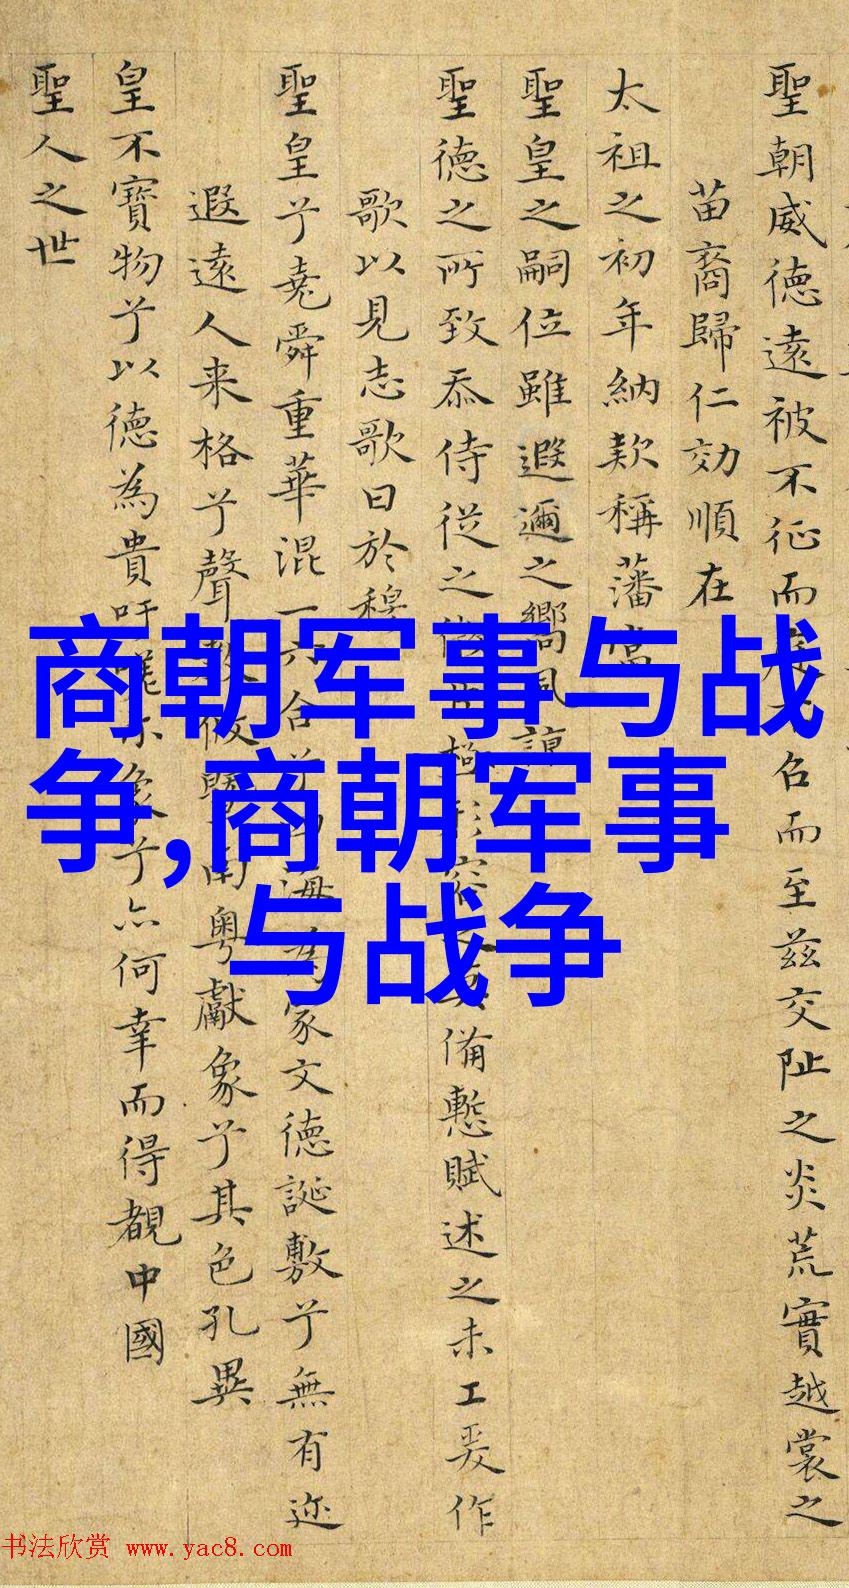 聖朝威德遠被不征而召而至兹交阯之炎荒實越裳之
苗裔歸仁効順在
太祖之初年納款稱藩
聖皇之嗣位雖遐邇之嚮風
聖德之所致忝侍從之備慙賦述之未工爰作
歌以見志歌曰於穆
聖皇兮堯舜重華混一六合海為家文德誕敷兮無有迩
遐遠人来格兮聲教攸南粤獻象兮其色孔異
皇不寶物兮以德為貴吁嗟尔象兮亦何幸而得覩中國
聖人之世
商朝军事与战
争,商朝军事
与战争
书法欣赏 www.yac8.com